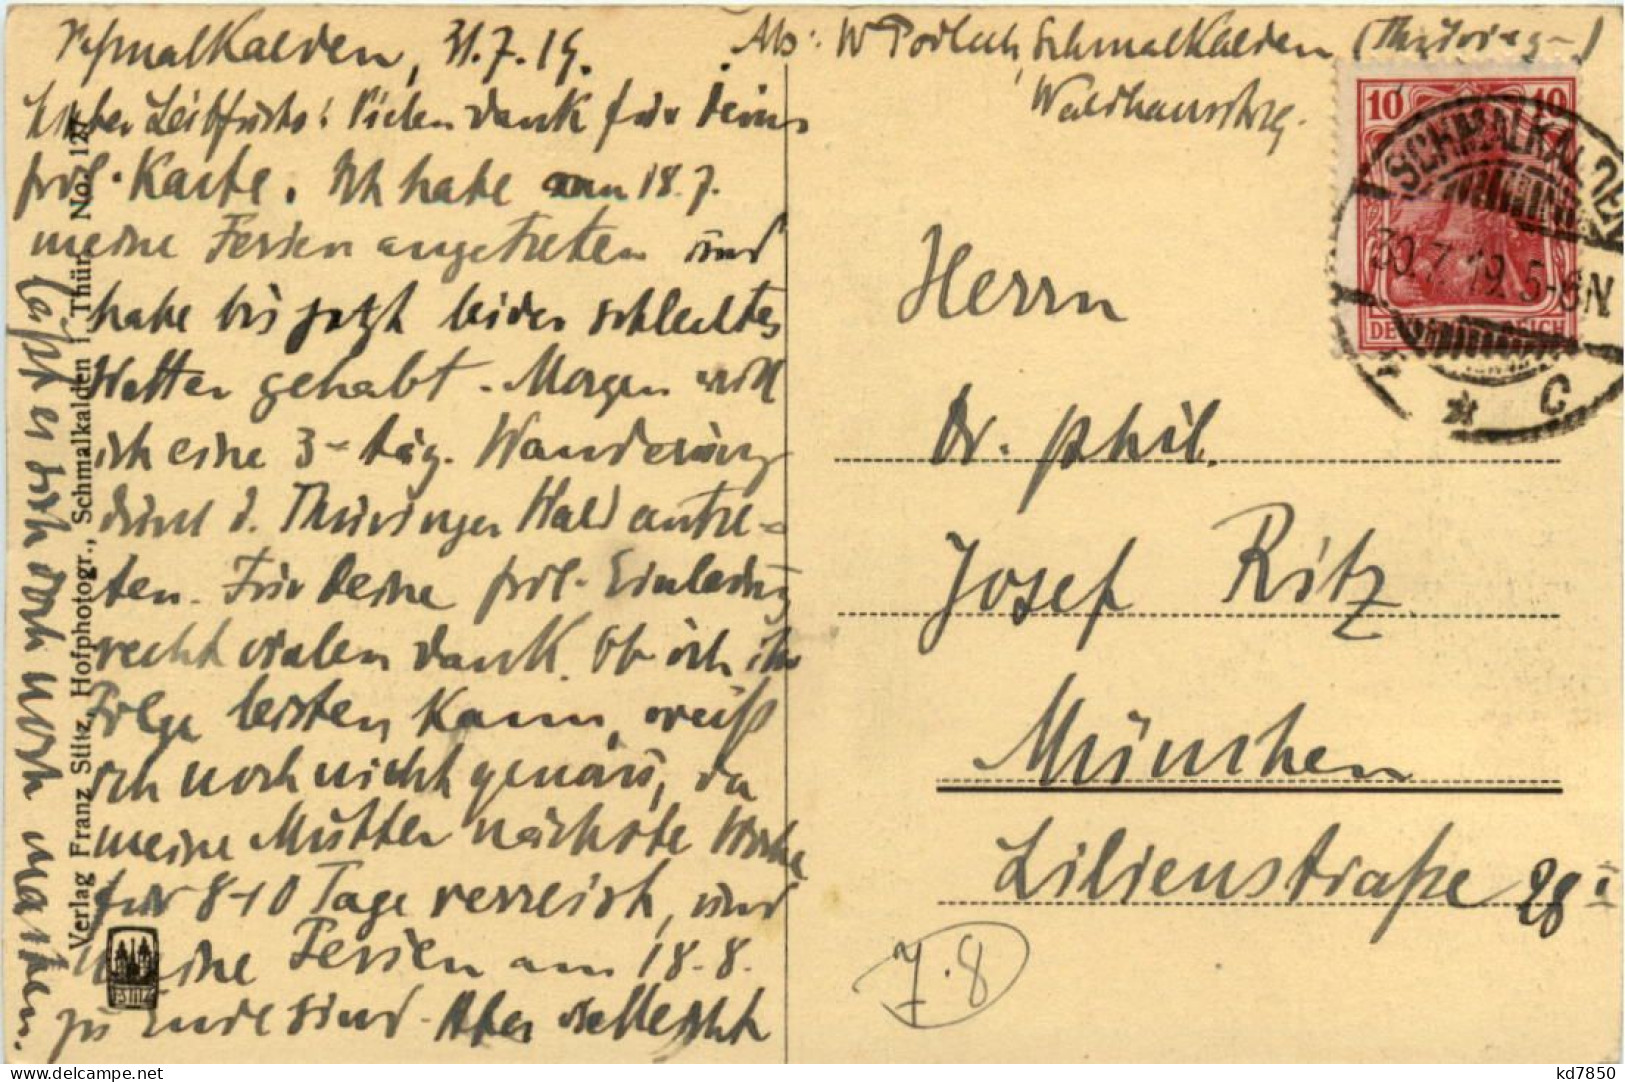 Schmalkalden, 31.7.19.
Lieber Leibfuchs! Vielen Dank für Deine
frdl. Karte. Ich habe am 18.7.
meine Ferien angetreten und
habe bis jetzt leider schlechtes
Wetter gehabt. Morgen will
ich eine 3-täg. Wanderung
durch d. Thüringer Wald antre-
ten. Für Deine frdl. Einladung
recht vielen Dank. Ob ich ihr
Folge leisten kann, weiß
ich noch nicht genau, da
meine Mutter nächste Woche
für 8-10 Tage verreist, und
meine Ferien am 18.8.
zu Ende sind. Aber vielleicht
läßt es sich doch noch machen.
Verlag Franz Stitz, Hofphotogr., Schmalkalden i. Thür. No. 127
Abs: W Podlech, Schmalkalden (Thüringen)
Waldhausstrg.
10 10
DEUTSCHES REICH
SCHMALKALDEN
30.7.19.5-6N
* C
Herrn
Dr. phil.
Josef Ritz
München
Lilienstraße 28 I
7.8
kd7850